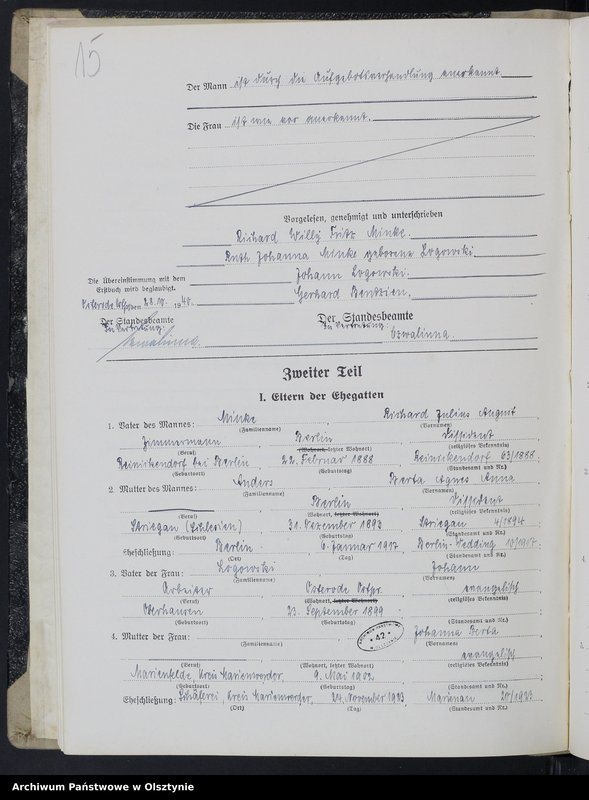 15
Der Mann ist durch die Aufgebotsverhandlung anerkannt.
Die Frau ist wie vor anerkannt.
Vorgelesen, genehmigt und unterschrieben
Richard Willy Fritz Minke.
Ruth Johanna Minke geborene Logowski.
Die Übereinstimmung mit dem
Erstbuch wird beglaubigt.
Johann Logowski.
Osterode Ostpr., den 28.12. 1940.
Gerhard Bentzien.
Der Standesbeamte
In Vertretung:
Der Standesbeamte
In Vertretung: Czwalinna.
Zweiter Teil
I. Eltern der Ehegatten
1. Vater des Mannes: Minke Richard Julius August
(Familienname) (Vornamen)
Zimmermann Berlin Dissident
(Beruf) (Wohnort, letzter Wohnort) (religiöses Bekenntnis)
Reinickendorf bei Berlin 22. Februar 1888 Reinickendorf 63/1888.
(Geburtsort) (Geburtstag) (Standesamt und Nr.)
2. Mutter des Mannes: Anders Berta Agnes Anna
(Familienname) (Vornamen)
Berlin Dissident
(Beruf) (Wohnort, letzter Wohnort) (religiöses Bekenntnis)
Striegau (Schlesien) 31. Dezember 1893 Striegau 4/1894
(Geburtsort) (Geburtstag) (Standesamt und Nr.)
Eheschließung: Berlin 6. Januar 1917 Berlin-Wedding 10/1917.
(Ort) (Tag) (Standesamt und Nr.)
3. Vater der Frau: Logowski Johann
(Familienname) (Vornamen)
Arbeiter Osterode Ostpr. evangelisch
(Beruf) (Wohnort, letzter Wohnort) (religiöses Bekenntnis)
Oberhausen 23. September 1899
(Geburtsort) (Geburtstag) (Standesamt und Nr.)
4. Mutter der Frau: Johanna Berta
(Familienname) (Vornamen)
42
evangelisch
(Beruf) (Wohnort, letzter Wohnort) (religiöses Bekenntnis)
Marienfelde, Kreis Marienwerder 9. Mai 1902
(Geburtsort) (Geburtstag) (Standesamt und Nr.)
Eheschließung: Schäferei, Kreis Marienwerder, 24. November 1923 Marienau 20/1923
(Ort) (Tag) (Standesamt und Nr.)
Archiwum Państwowe w Olsztynie